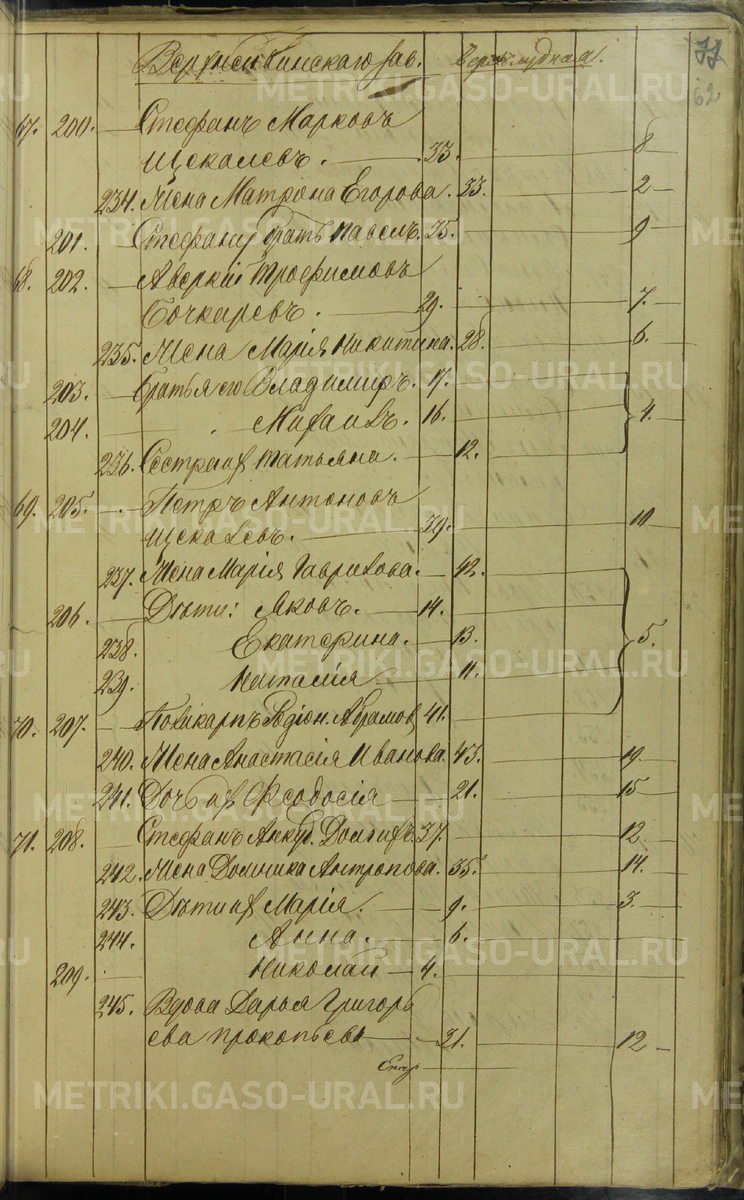 62
67. 200. Стефанъ Марковъ
Щекалевъ. 33. 8
234. Жена Матрона Егорова. 33. 2
201. Стефану братъ Павелъ. 25. 9
68. 202. Аверкій Трофимовъ
Бочкаревъ. 29. 7.
235. Жена Марія Никитина. 28. 6.
203. Братья его Владимиръ. 17.
204. Михаилъ. 16. 4.
236. Сестра их Татьяна. 12.
69. 205. Петръ Антоновъ
Щекалевъ. 39. 10
237. Жена Марія Гаврилова. 42.
206. Дѣти: Яковъ. 14.
238. Екатерина. 13. 5.
239. Наталія 11.
70. 207. Поликарпъ Родіон. Абрамов 41.
240. Жена Анастасія Иванова. 43. 19.
241. Дочь их Феодосія 21. 15
71. 208. Стефанъ Долгихъ. 37. 12
242. Жена Домника Антропова. 35. 14.
243. Дѣти их Марія. 9. 3.
244. Анна. 6.
209. Николай 4.
245. Вдова Дарья Григорь
ева Прокопьева 31. 12
METRIKI.GASO-URAL.RU